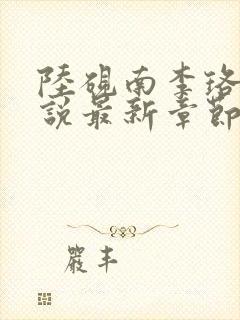 陸硯南李珞
說最新章節
嚴丰